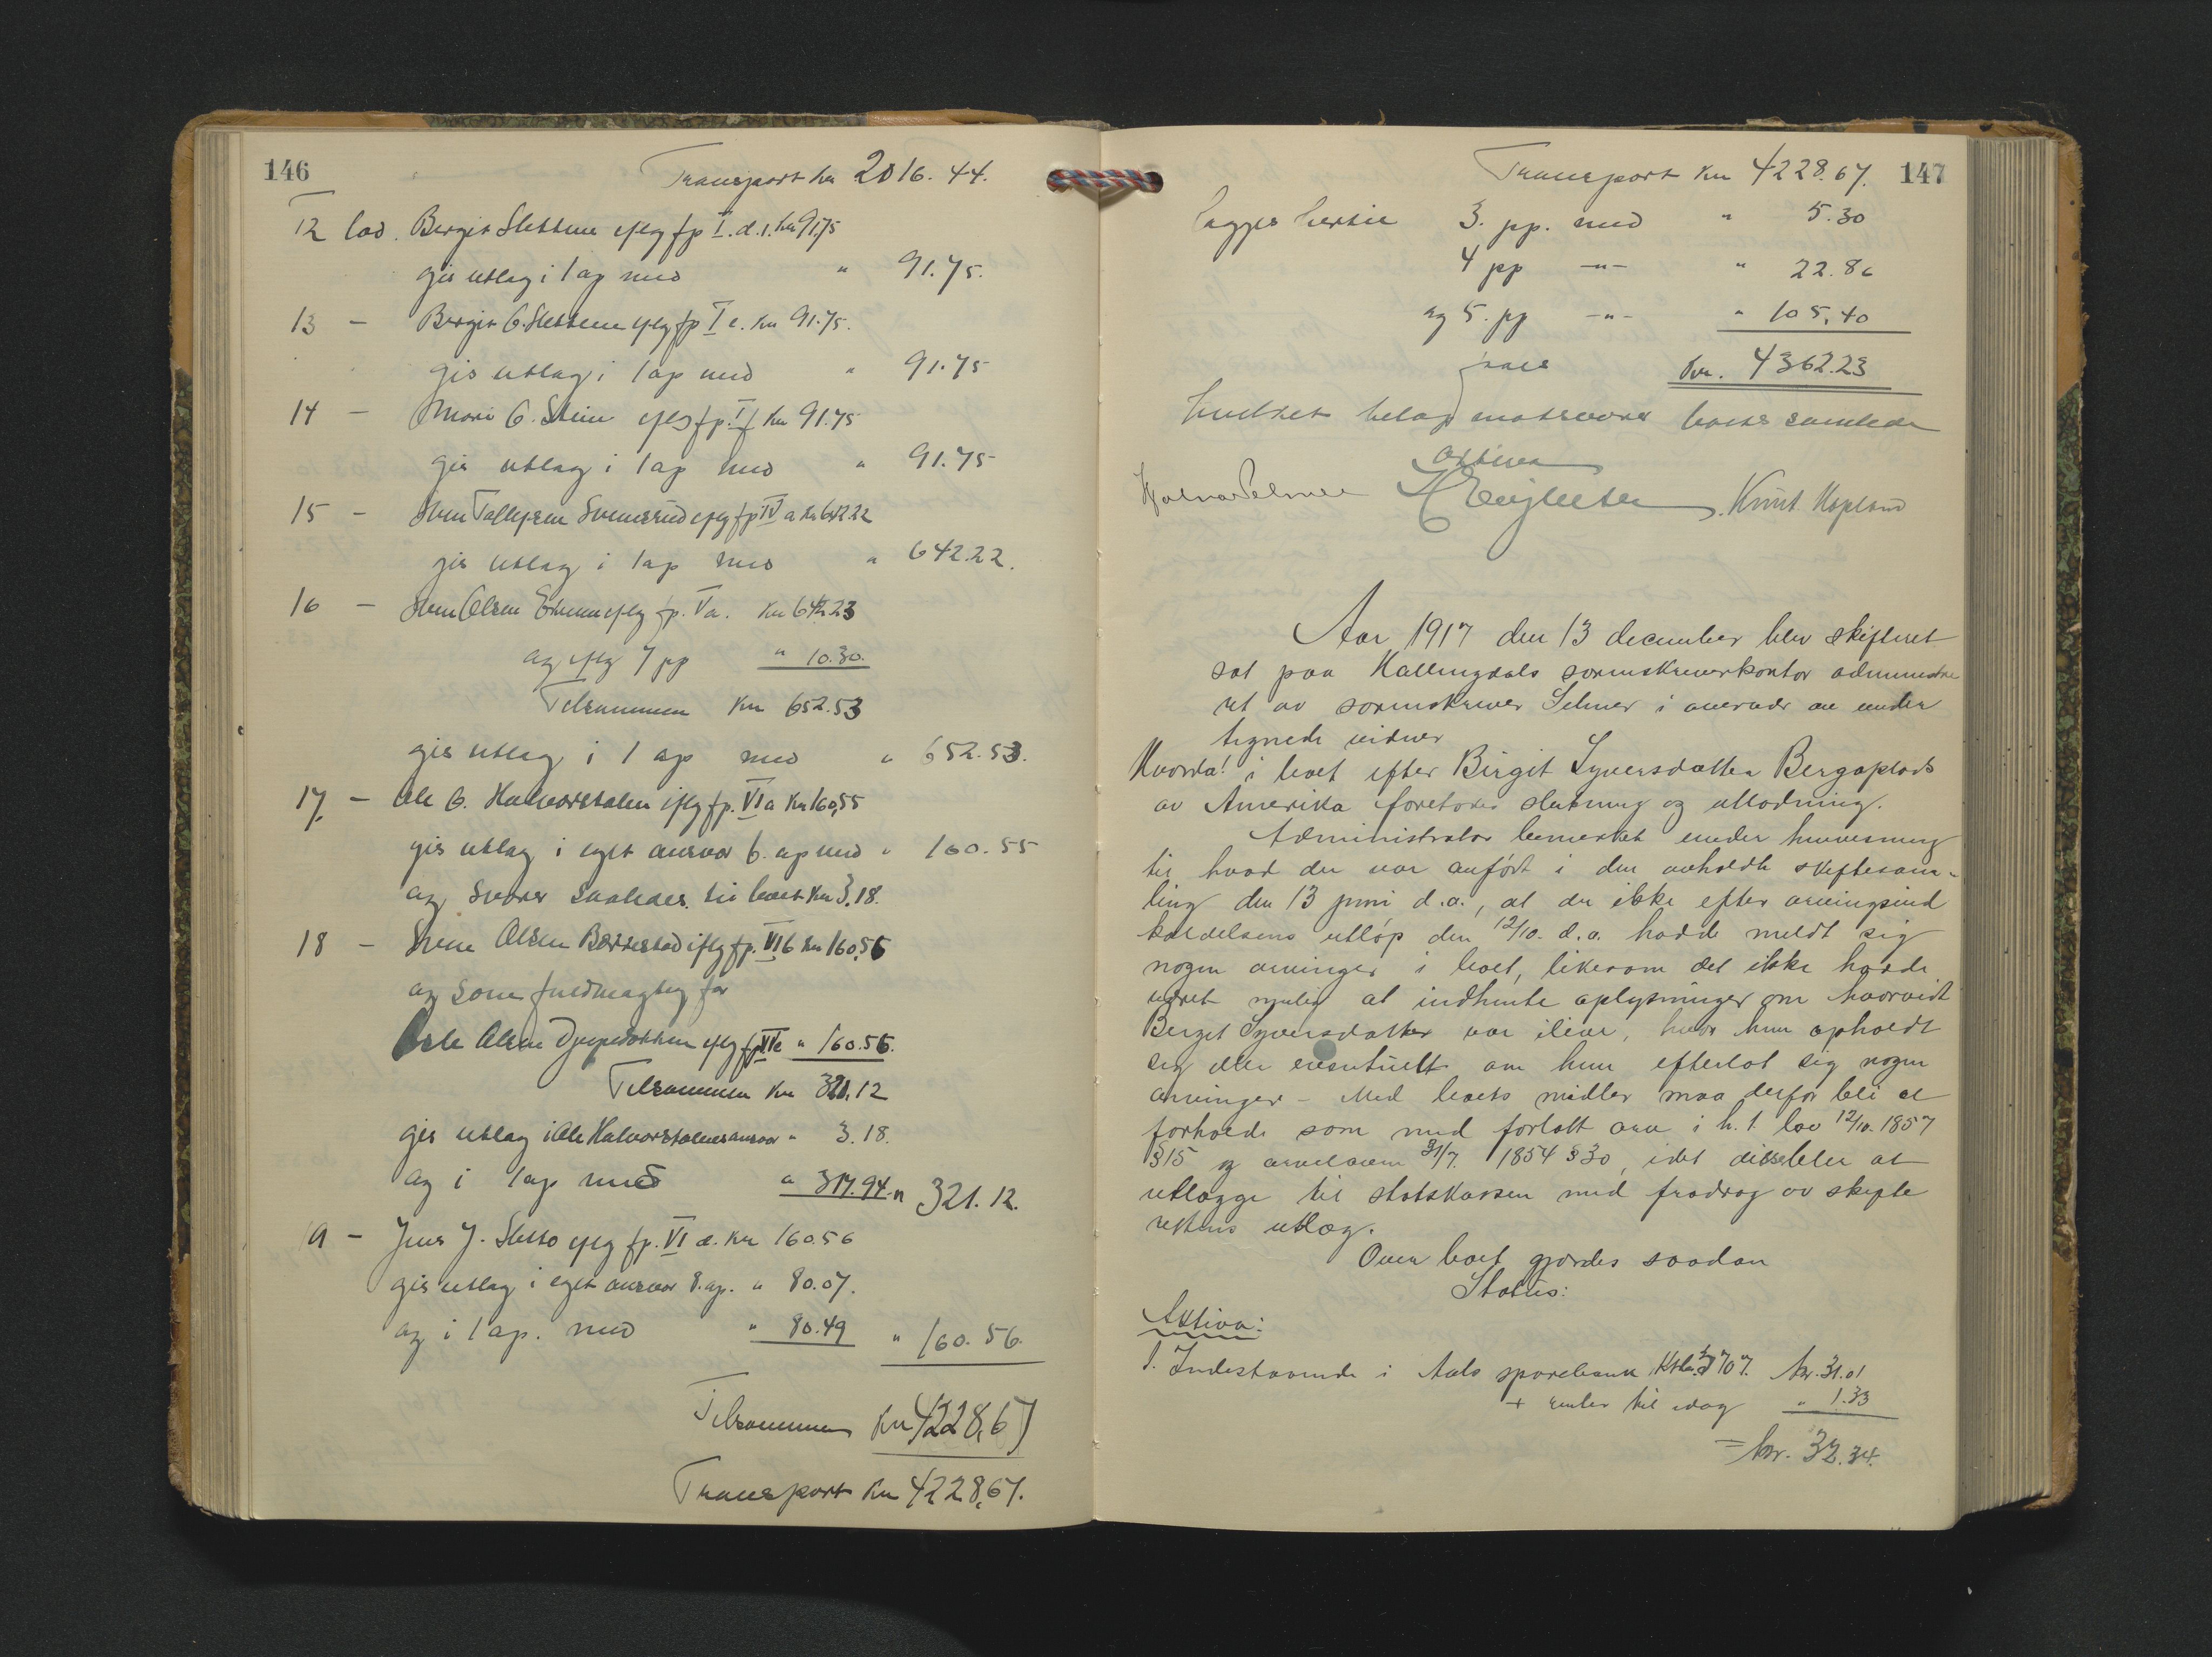 146
Transport kr 2016.44.
12 lod. Bergit Slettene iflg fp I. d. 1. kr 91.75
gis utlæg i 1 ap med " 91.75.
13 - Birgit O. Slettene iflg fp I e. kr 91.75.
gis utlæg i 1 ap med " 91.75
14 - Mari O. iflg fp. I f kr 91.75
gis utlæg i 1 ap med " 91.75
15 - Sven Tollefsen Svensrud iflg fp IV a kr 642.22
gis utlæg i 1 ap med " 642.22.
16 - Sven Olsen iflg fp. V a. kr 642.23
og iflg 7 pp " 10.30.
Tilsammen kr 652.53
gis utlæg i 1 ap med " 652.53.
17. - Ole O. Halvorstølen iflg fp. VI a kr 160.55
gis utlæg i eget ansvar 6. ap med " 160.55
og svarer saaledes til boet kr 3.18.
18 - Svein Olsen iflg fp. VI b kr 160.56
og som fuldmægtig for
Olsen Djupedokken iflg fp VI c " 160.56.
Tilsammen kr 321.12
gis utlæg i Ole Halvorstølens ansvar " 3.18.
og i 1 ap med " 317.94 " 321.12.
19 - Jens J. Sletto iflg fp. VI d. kr 160.56
gis utlæg i eget ansvar 8. ap. " 80.07.
og i 1 ap. med " 80.49 " 160.56.
Tilsammen kr 4228,67
Transport kr 4228,67.
Transport kr 4228.67. 147
lægges hertil 3. pp. med " 5.30
4 pp -"- " 22.86
og 5. pp -"- " 105,40
faaes kr. 4362.23
hvilket beløp motsvarer boets samlede
aktiva
Aar 1917 den 13 december blev skifteret
sat paa Hallingdals sorenskriverkontor administre
ret av sorenskriver Selmer i overvær av under
tegnede vidner
Hvorda! i boet efter Birgit Syversdatter Bergaplads
av Amerika foretoges slutning og utlodning.
Administrator bemerket under henvisning
til hvad der var anført i den avholdte skiftesam-
ling den 13 juni d.a., at der ikke efter arvingsind
kaldelsens utløp den 12/10. d.a. hadde meldt sig
nogen arvinger i boet, likesom det ikke hadde
været mulig at indhente oplysninger om hvorvidt
Berget Syversdatter var ilive, hvor hun opholdt
sig eller eventuelt om hun efterlot sig nogen
arvinger - Med boets midler maa derfor bli at
forholde som med forlatt arv i h.t. lov 12/10. 1857
§15 og arveloven 31/7. 1854 §30, idet disse blir at
utlægge til statskassen med fradrag av skifte
rettens utlæg.
Over boet gjordes saadan
Status:
Aktiva:
1. Indestaaende i Aals sparebank kr. 31.01
+ renter til idag " 1.33
= kr. 32.34.